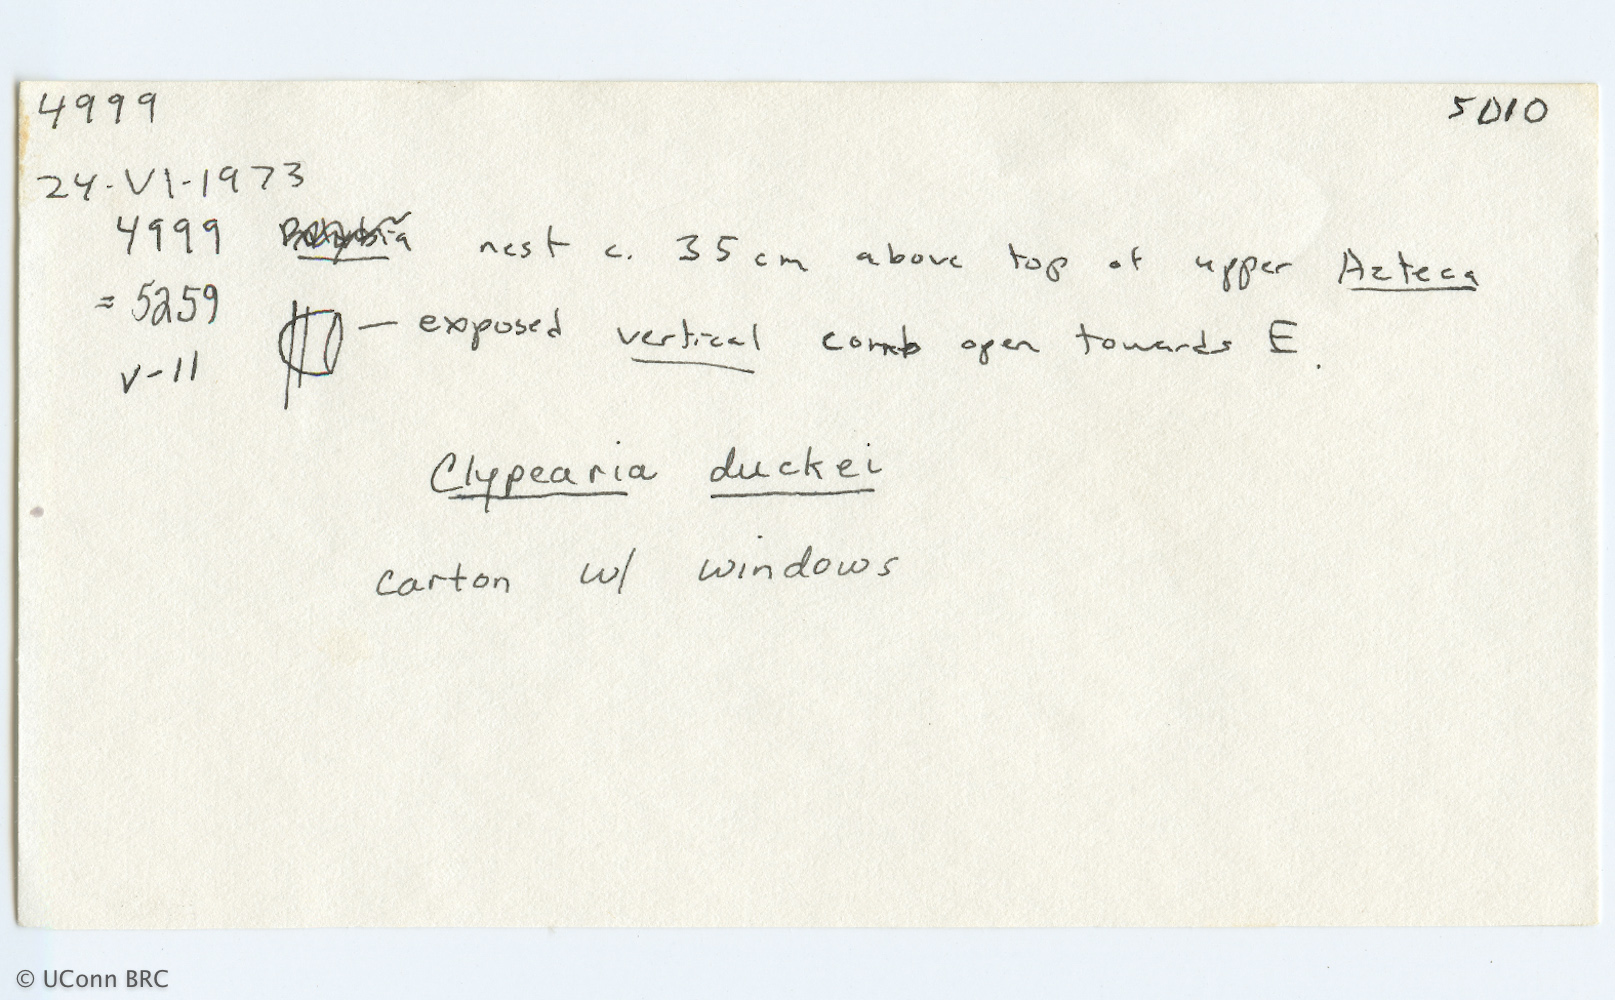 4999 5010
24-VI-1973
4999 nest c. 35 cm above top of upper Azteca
= 5259
— exposed vertical comb open towards E.
V-11
Clypearia duckei
carton w/ windows
© UConn BRC